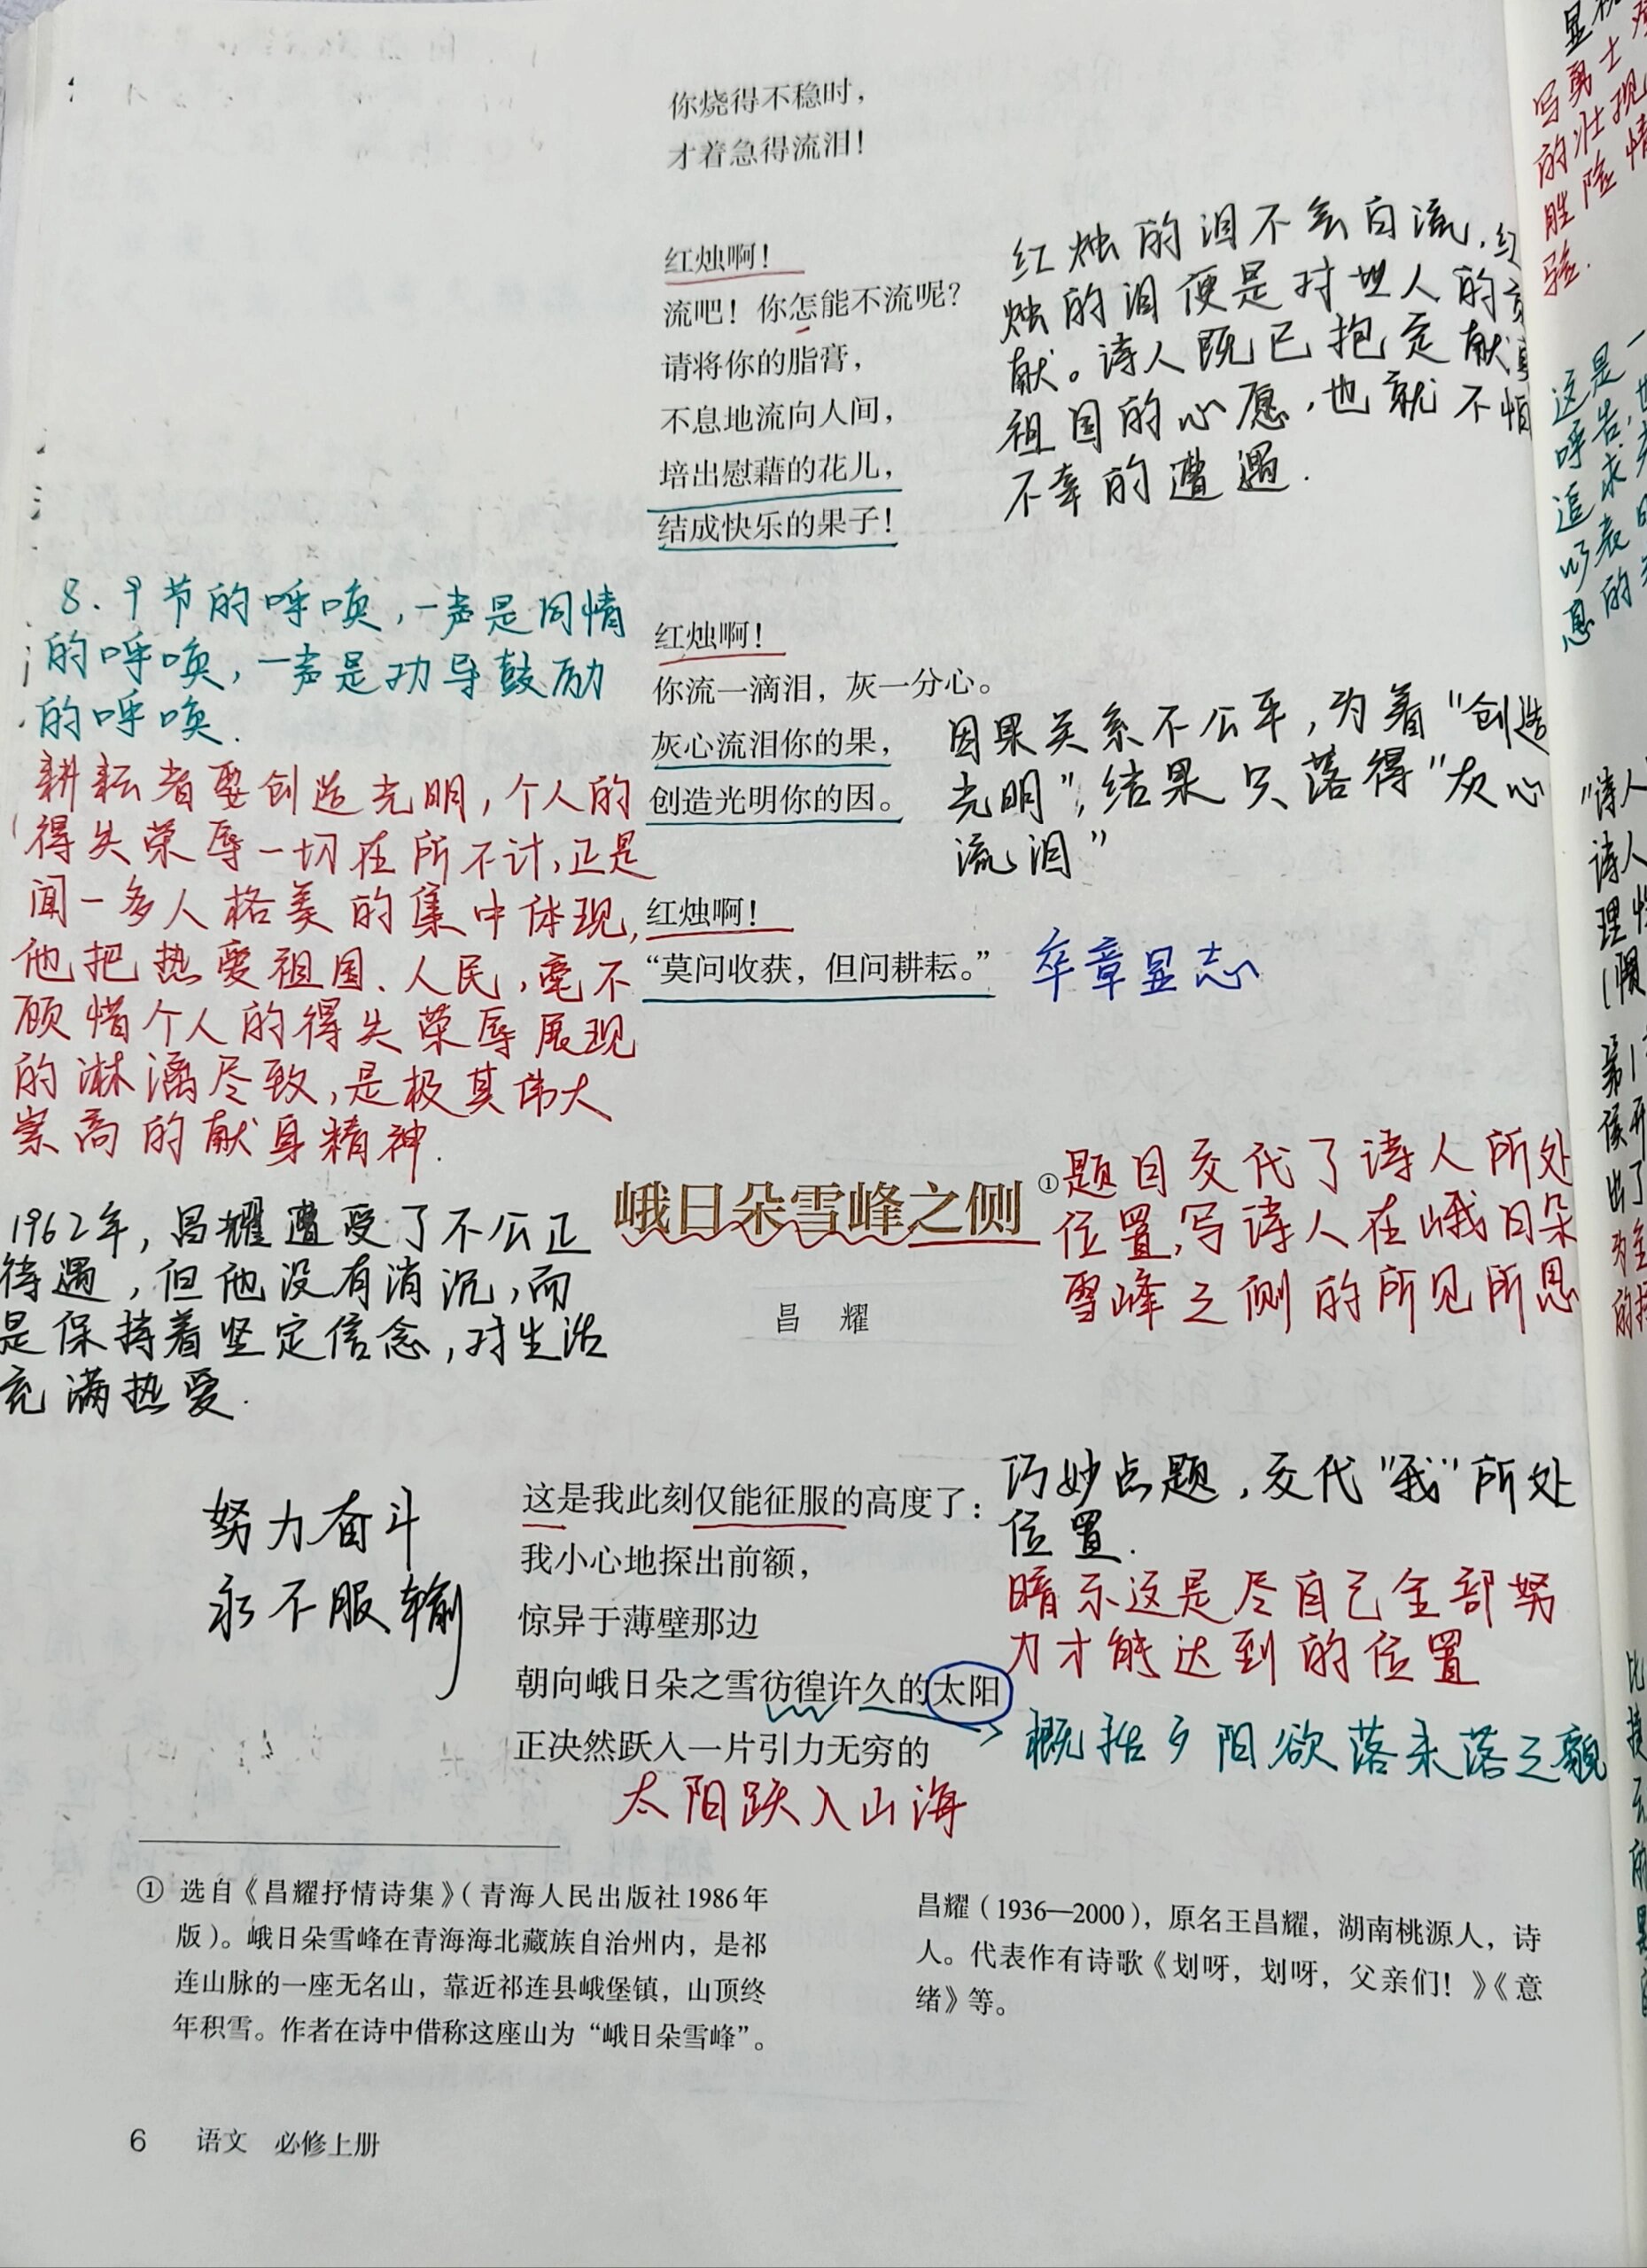 你烧得不稳时，
才着急得流泪！
红烛啊！
流吧！你怎能不流呢？
请将你的脂膏，
不息地流向人间，
培出慰藉的花儿，
结成快乐的果子！
红烛的泪不会白流，红
烛的泪便是对世人的贡
献。诗人既已抱定献身
祖国的心愿，也就不怕
不幸的遭遇.
8、9节的呼唤，一声是同情
的呼唤，一声是劝导鼓励
的呼唤.
红烛啊！
你流一滴泪，灰一分心。
灰心流泪你的果，
创造光明你的因。
因果关系不公平，为着“创造
光明”，结果只落得“灰心
流泪”
耕耘者要创造光明，个人的
得失荣辱一切在所不计，正是
闻一多人格美的集中体现，
他把热爱祖国、人民，毫不
顾惜个人的得失荣辱展现
的淋漓尽致，是极其伟大
崇高的献身精神.
红烛啊！
“莫问收获，但问耕耘。”
卒章显志
峨日朵雪峰之侧①
昌 耀
题目交代了诗人所处
位置，写诗人在峨日朵
雪峰之侧的所见所思
1962年，昌耀遭受了不公正
待遇，但他没有消沉，而
是保持着坚定信念，对生活
充满热爱.
努力奋斗
永不服输
这是我此刻仅能征服的高度了：
我小心地探出前额，
惊异于薄壁那边
朝向峨日朵之雪彷徨许久的太阳
正决然跃入一片引力无穷的
巧妙点题，交代“我”所处
位置.
暗示这是尽自己全部努
力才能达到的位置
概括夕阳欲落未落之貌
太阳跃入山海
① 选自《昌耀抒情诗集》（青海人民出版社1986年
版）。峨日朵雪峰在青海海北藏族自治州内，是祁
连山脉的一座无名山，靠近祁连县峨堡镇，山顶终
年积雪。作者在诗中借称这座山为“峨日朵雪峰”。
昌耀（1936—2000），原名王昌耀，湖南桃源人，诗
人。代表作有诗歌《划呀，划呀，父亲们！》《意
绪》等。
6 语文 必修上册
写勇士
的壮观
胜险情
验.
这是一
呼告，也
追求
以表明
愿的
“诗人
诗人